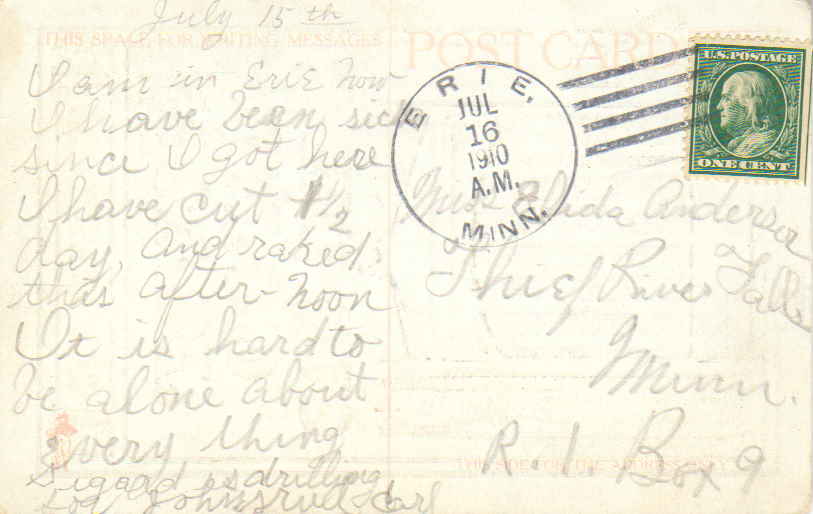 July 15th
THIS SPACE FOR WRITING MESSAGES
POST CARD
I am in Erie now
I have bean sick
since I got here
I have cut 1 1/2
day, and raked
this after-noon
It is hard to
be alone about
every thing
is drilling
Carl
ERIE,
JUL
16
1910
A.M.
MINN.
U.S. POSTAGE
ONE CENT
Miss Elida Anderson
Thief River Falls
Minn.
R. 1. Box 9
THIS SIDE FOR THE ADDRESS ONLY